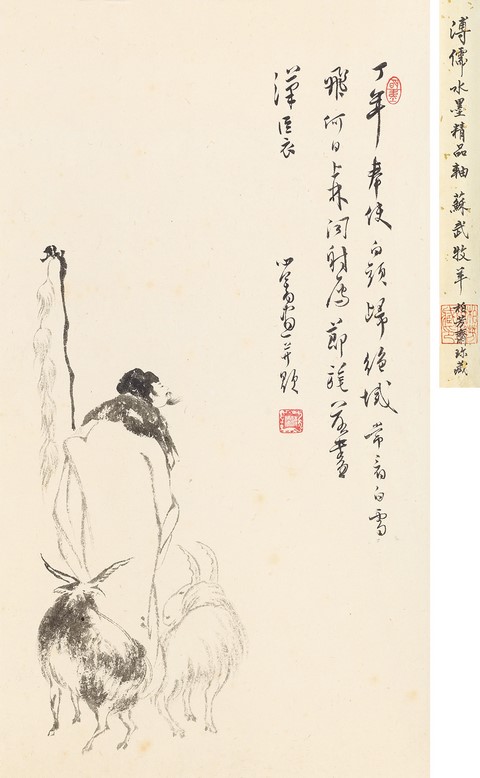 溥儒水墨精品軸 蘇武牧羊 柏芳齋珍藏
丁年奉使白頭歸絕域常看白雪
飛何日上林聞射雁節旄落盡
漢臣衣 心畬畫并題